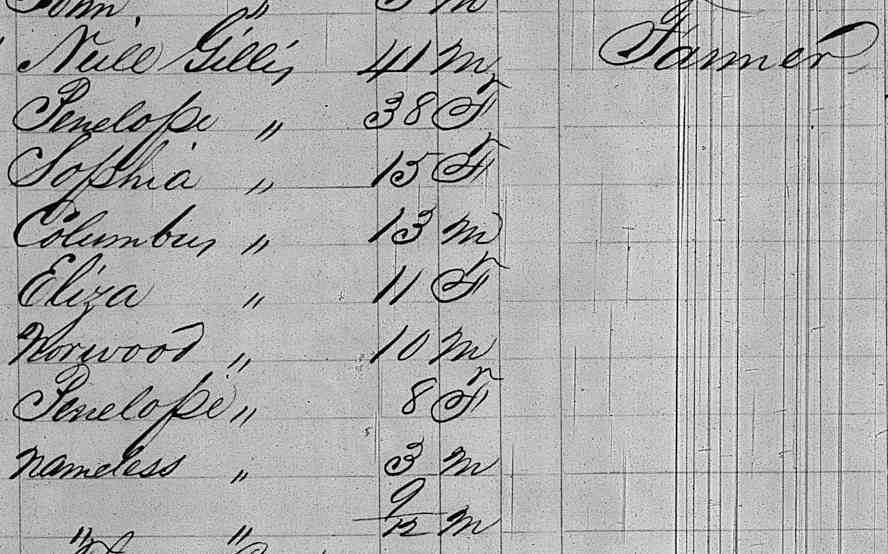 John " 5 m
Neill Gillis 41 m Farmer
Penelope " 38 F
Sophia " 15 F
Columbus " 13 m
Eliza " 11 F
Norwood " 10 m
Penelope " 8 F
nameless " 3 m
" " 9/12 m